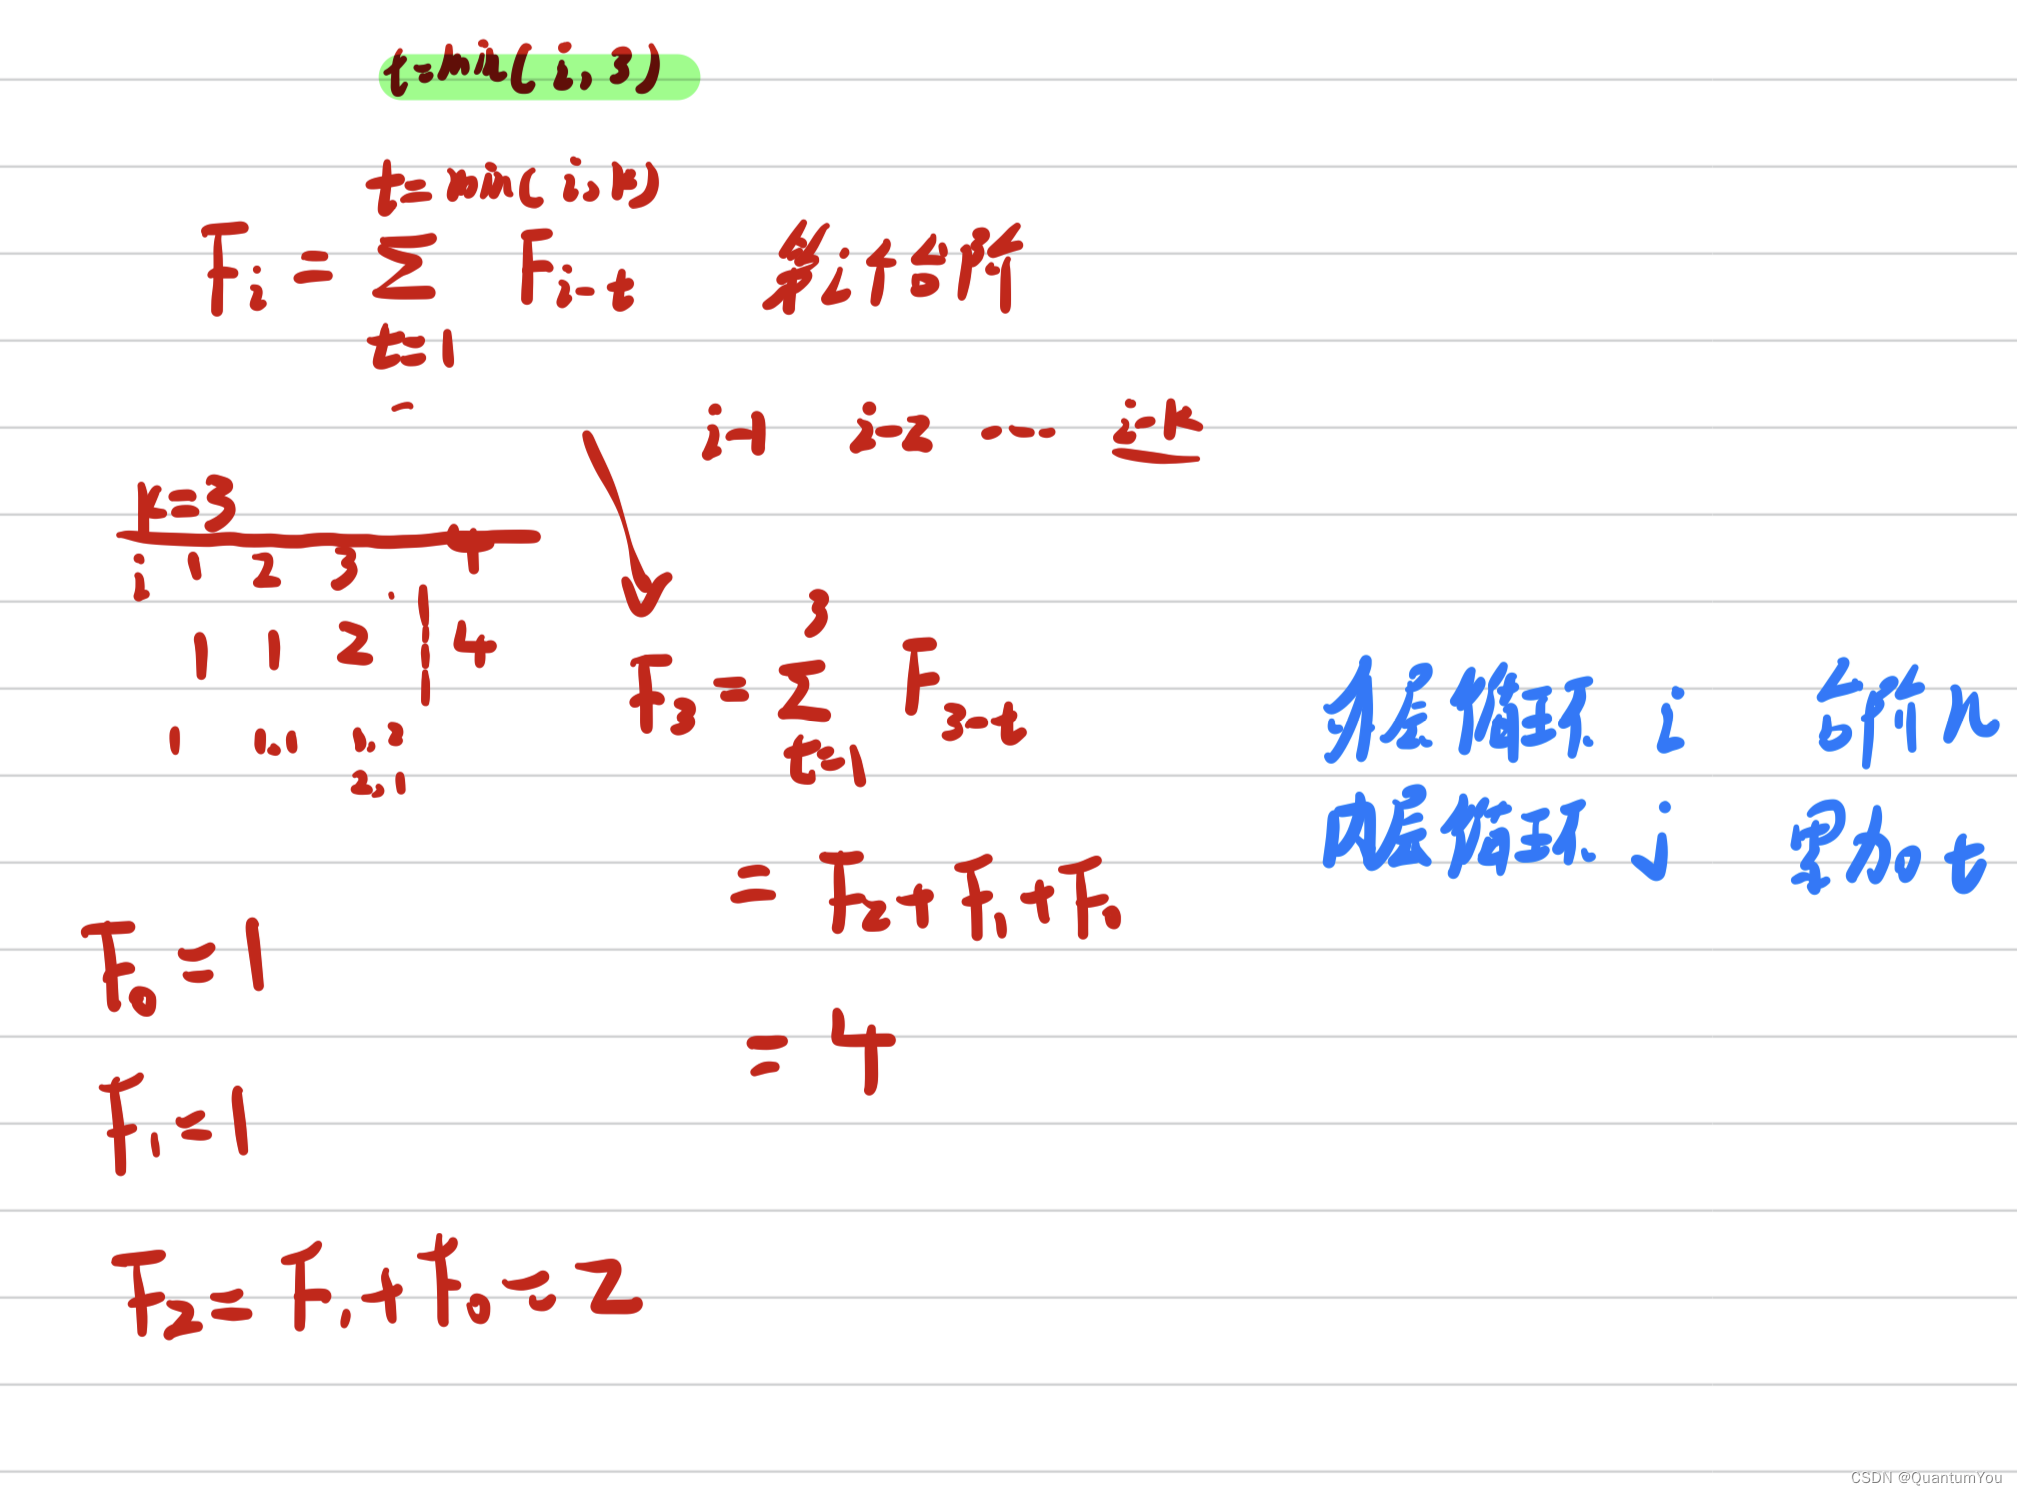 t=min(i,3)
t=min(i,k)
F_i = Σ F_{i-t} 第i个台阶
t=1
i-1 i-2 ... i-k
k=3
i 1 2 3 4
1 1 2 4
1 0.0
2,1
3
F_3 = Σ F_{3-t}
t=1
外层循环 i 台阶n
内层循环 j 累加t
= F_2 + F_1 + F_0
F_0 = 1
= 4
F_1 = 1
F_2 = F_1 + F_0 = 2
CSDN @QuantumYou